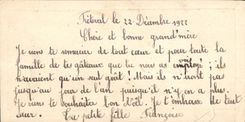 le 22 Décembre 1922
Chère et bonne grand'mère
Je viens te remercier de tout cœur et pour toute la
famille de tes gâteaux que tu nous as envoyé ; ils
n'avaient qu'un seul goût ! Mais ils n'iront pas
jusqu'au jour de l'an puisqu'il n'y en a plus.
Je viens te souhaiter bon Noël. Je t'embrasse de tout
cœur. Ta petite fille Françoise